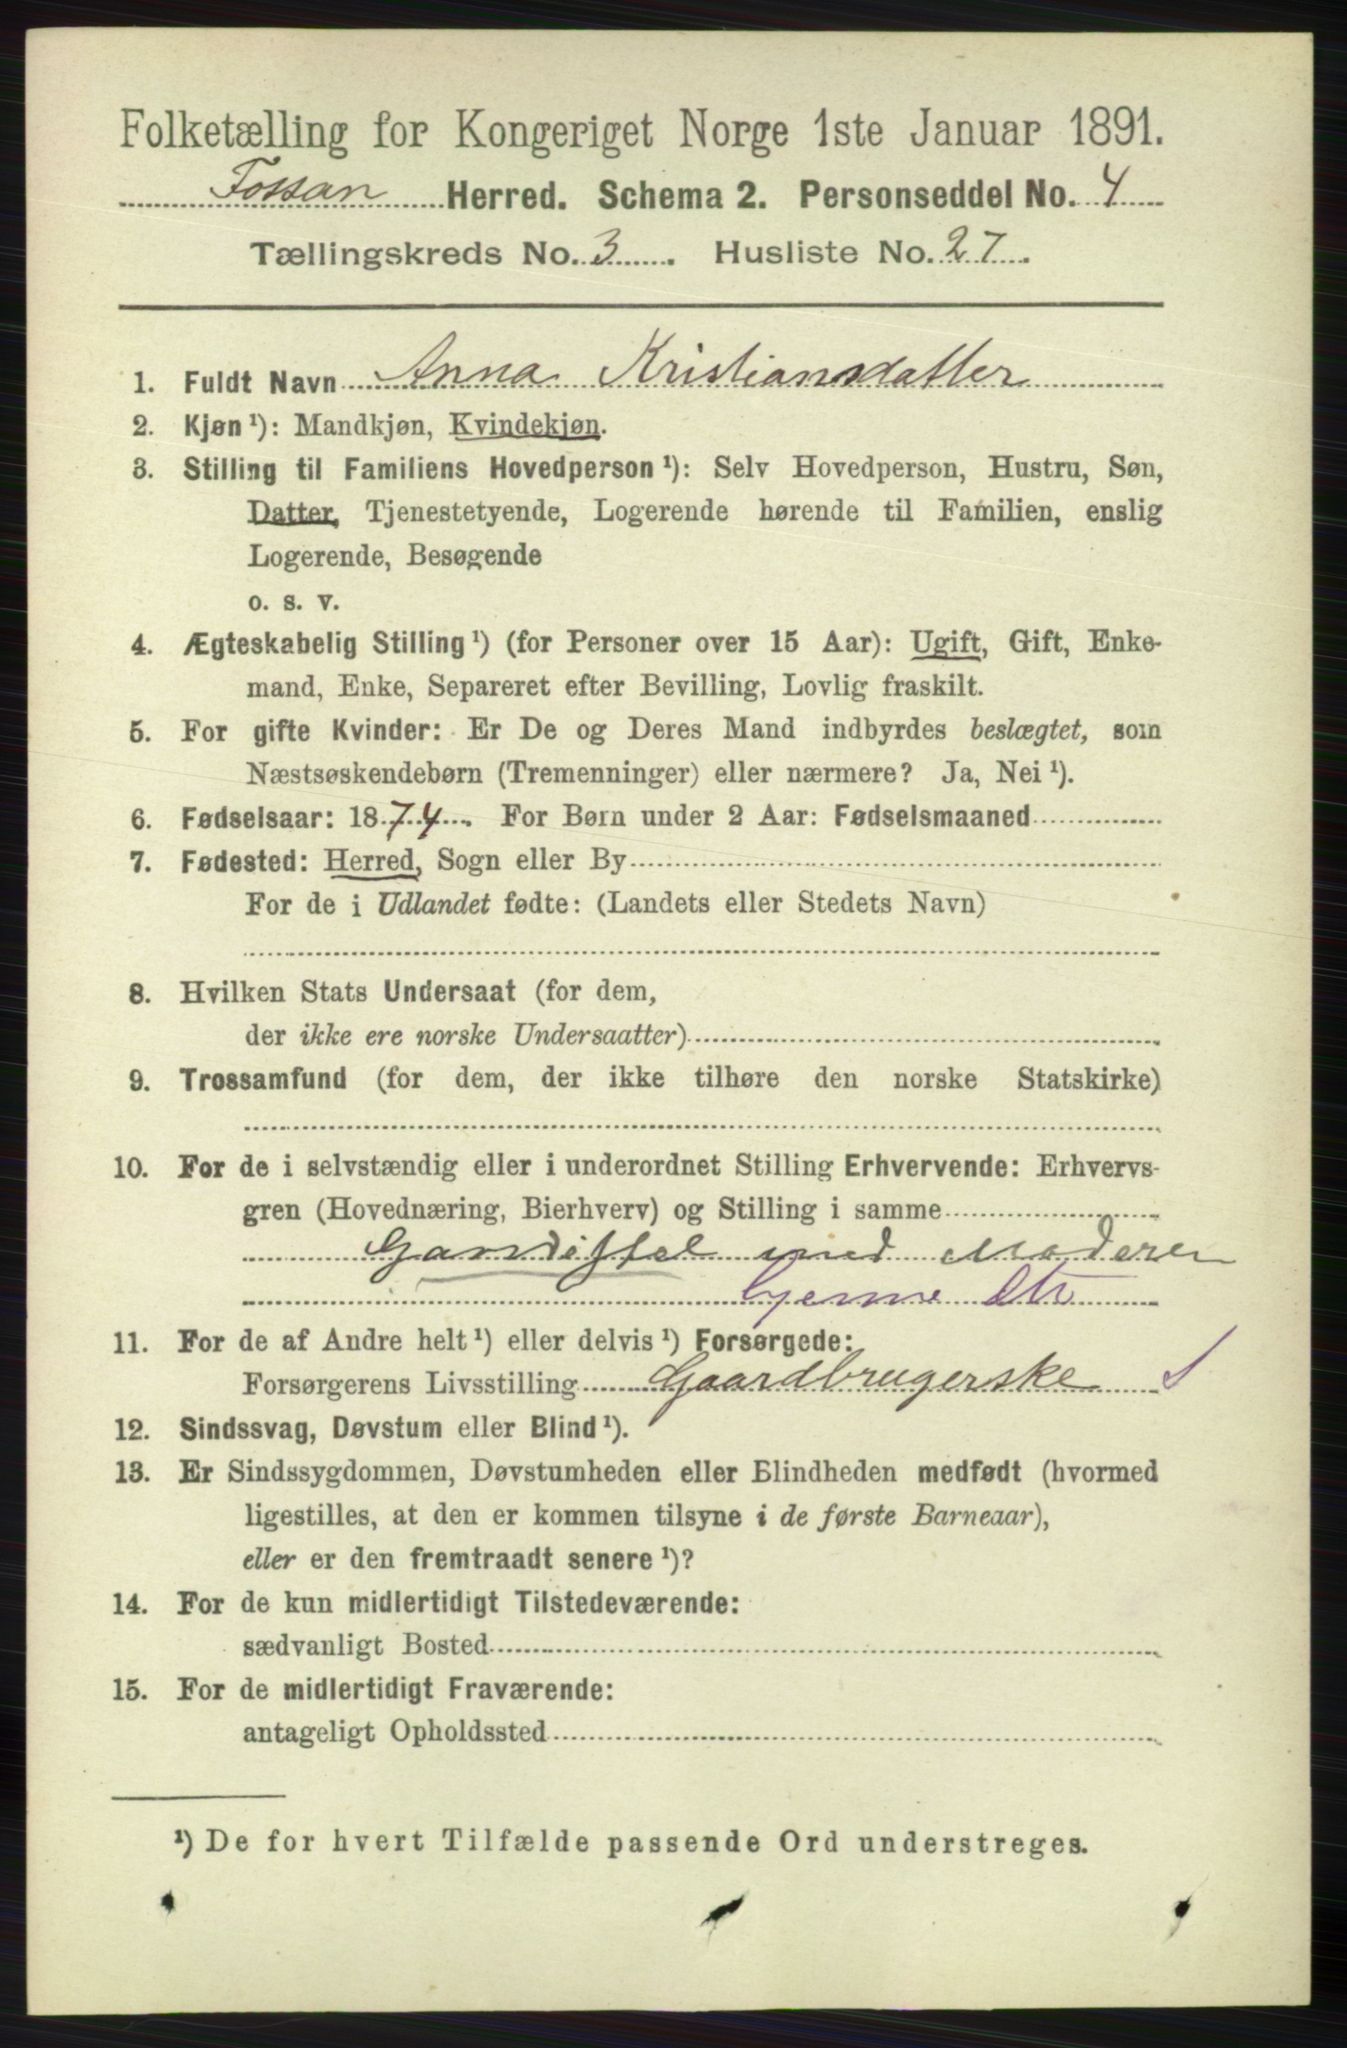 Folketælling for Kongeriget Norge 1ste Januar 1891.
Fossan Herred. Schema 2. Personseddel No. 4
Tællingskreds No. 3 . Husliste No. 27 .
1. Fuldt Navn Anna Kristiansdatter
2. Kjøn ¹): Mandkjøn, Kvindekjøn.
3. Stilling til Familiens Hovedperson ¹): Selv Hovedperson, Hustru, Søn,
Datter, Tjenestetyende, Logerende hørende til Familien, enslig
Logerende, Besøgende
o. s. v.
4. Ægteskabelig Stilling ¹) (for Personer over 15 Aar): Ugift, Gift, Enke-
mand, Enke, Separeret efter Bevilling, Lovlig fraskilt.
5. For gifte Kvinder: Er De og Deres Mand indbyrdes beslægtet, som
Næstsøskendebørn (Tremenninger) eller nærmere? Ja, Nei ¹).
6. Fødselsaar: 1874. For Børn under 2 Aar: Fødselsmaaned
7. Fødested: Herred, Sogn eller By
For de i Udlandet fødte: (Landets eller Stedets Navn)
8. Hvilken Stats Undersaat (for dem,
der ikke ere norske Undersaatter)
9. Trossamfund (for dem, der ikke tilhøre den norske Statskirke)
10. For de i selvstændig eller i underordnet Stilling Erhvervende: Erhvervs-
gren (Hovednæring, Bierhverv) og Stilling i samme
med Moderen
11. For de af Andre helt ¹) eller delvis ¹) Forsørgede:
Forsørgerens Livsstilling Gaardbrugerske
12. Sindssvag, Døvstum eller Blind ¹).
13. Er Sindssygdommen, Døvstumheden eller Blindheden medfødt (hvormed
ligestilles, at den er kommen tilsyne i de første Barneaar),
eller er den fremtraadt senere ¹)?
14. For de kun midlertidigt Tilstedeværende:
sædvanligt Bosted
15. For de midlertidigt Fraværende:
antageligt Opholdssted
¹) De for hvert Tilfælde passende Ord understreges.